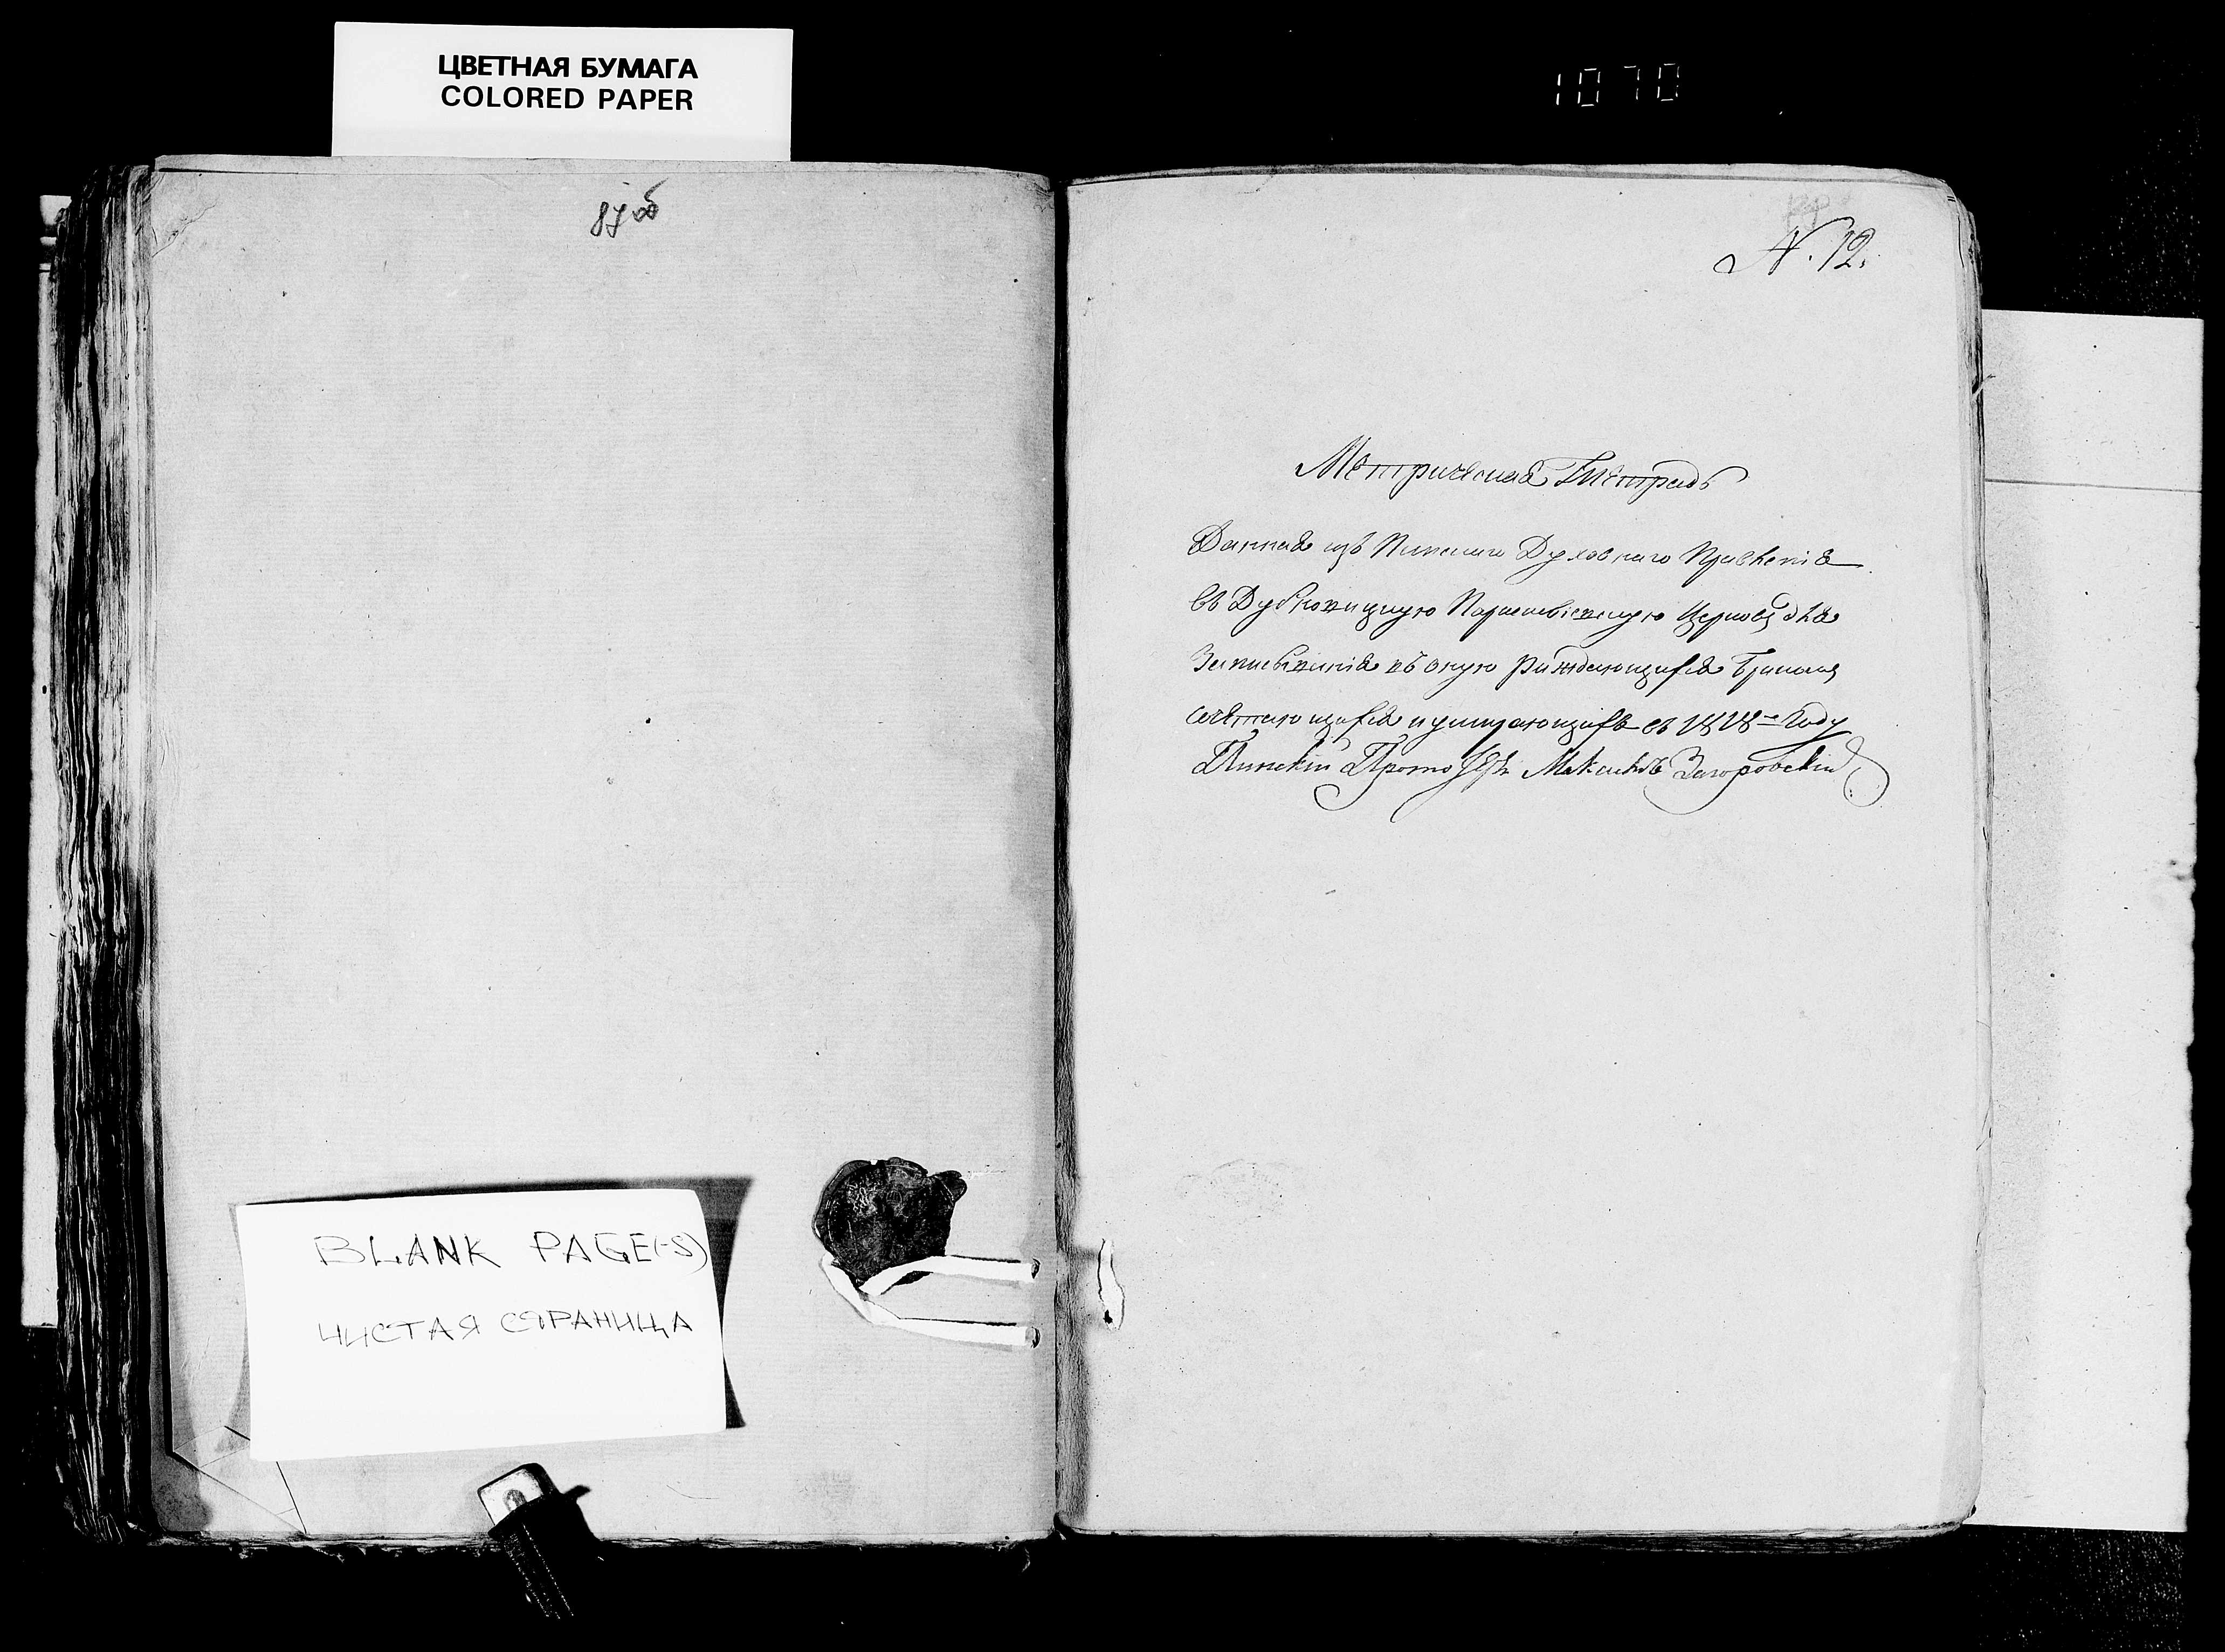 ЦВЕТНАЯ БУМАГА
COLORED PAPER
1070
87об
N. 12.
Метрическая Тетрадь
Данная изъ Пинскаго Духовнаго Правленія
въ Дубновицкую Параскевіевскую Церковь для
Записыванія въ оную раждающихся Бракомъ
сочетающихся и умирающихъ въ году
Пинскій Прото Загоровскій
BLANK PAGE(-S)
ЧИСТАЯ СТРАНИЦА